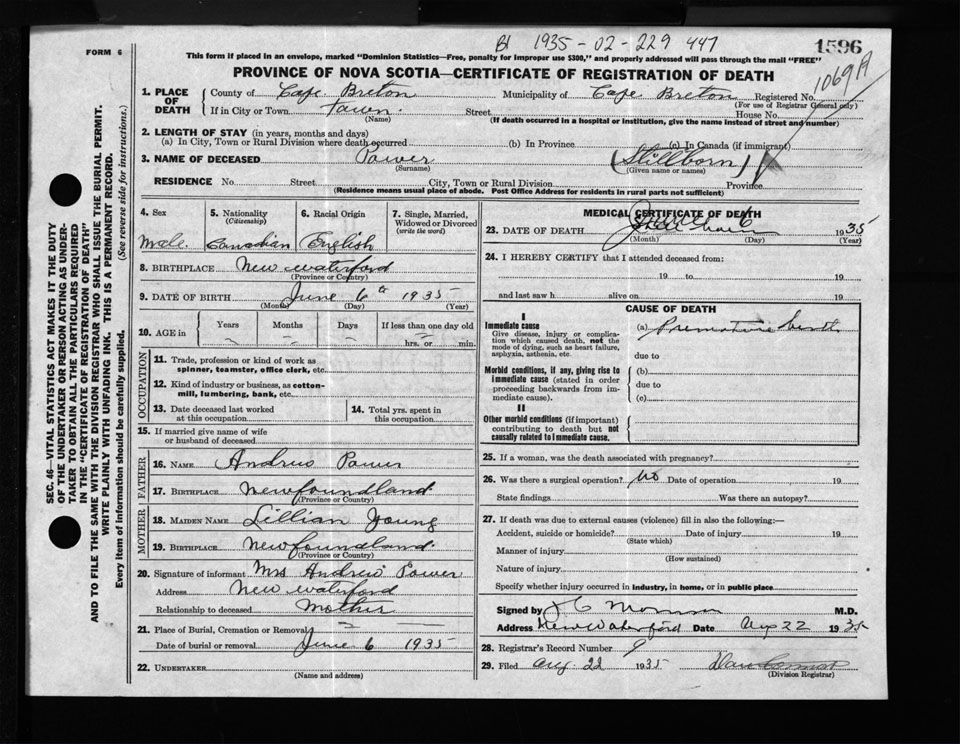 Bt 1935-02-229 447
1596
FORM 6
This form if placed in an envelope, marked "Dominion Statistics—Free, penalty for improper use $300," and properly addressed will pass through the mail "FREE"
PROVINCE OF NOVA SCOTIA—CERTIFICATE OF REGISTRATION OF DEATH
1069A
1. PLACE OF DEATH County of Cape Breton Municipality of Cape Breton Registered No.
(For use of Registrar General only)
If in City or Town Town. Street House No.
(Name) (If death occurred in a hospital or institution, give the name instead of street and number)
2. LENGTH OF STAY (in years, months and days)
(a) In City, Town or Rural Division where death occurred (b) In Province (c) In Canada (if immigrant)
3. NAME OF DECEASED Power (Stillborn)
(Surname) (Given name or names)
RESIDENCE No. Street City, Town or Rural Division Province
(Residence means usual place of abode. Post Office Address for residents in rural parts not sufficient)
4. Sex 5. Nationality (Citizenship) 6. Racial Origin 7. Single, Married, Widowed or Divorced (write the word)
Male. Canadian English
8. BIRTHPLACE New Waterford
(Province or Country)
9. DATE OF BIRTH June 6th 1935
(Month) (Day) (Year)
10. AGE in Years Months Days If less than one day old
hrs. or min.
OCCUPATION
11. Trade, profession or kind of work as spinner, teamster, office clerk, etc.
12. Kind of industry or business, as cotton-mill, lumbering, bank, etc.
13. Date deceased last worked at this occupation
14. Total yrs. spent in this occupation
15. If married give name of wife or husband of deceased
FATHER
16. NAME Andrew Power
17. BIRTHPLACE Newfoundland
(Province or Country)
MOTHER
18. MAIDEN NAME Lillian Young
19. BIRTHPLACE Newfoundland
(Province or Country)
20. Signature of informant Mrs Andrew Power
Address New Waterford
Relationship to deceased Mother
21. Place of Burial, Cremation or Removal
Date of burial or removal June 6 1935
22. UNDERTAKER
(Name and address)
MEDICAL CERTIFICATE OF DEATH
23. DATE OF DEATH June 6 1935
(Month) (Day) (Year)
24. I HEREBY CERTIFY that I attended deceased from:
19 to 19
and last saw h alive on 19
CAUSE OF DEATH
I
Immediate cause
Give disease, injury or complication which caused death, not the mode of dying, such as heart failure, asphyxia, asthenia, etc.
(a) Premature birth
due to
Morbid conditions, if any, giving rise to immediate cause (stated in order proceeding backwards from immediate cause).
(b)
due to
(c)
II
Other morbid conditions (if important) contributing to death but not causally related to immediate cause.
25. If a woman, was the death associated with pregnancy?
26. Was there a surgical operation? No Date of operation 19
State findings Was there an autopsy?
27. If death was due to external causes (violence) fill in also the following:—
Accident, suicide or homicide? Date of injury 19
(State which)
Manner of injury
(How sustained)
Nature of injury
Specify whether injury occurred in industry, in home, or in public place
Signed by M.D.
Address New Waterford Date Aug 22 1935
28. Registrar's Record Number 9
29. Filed Aug 22 1935
(Division Registrar)
SEC. 46—VITAL STATISTICS ACT MAKES IT THE DUTY
OF THE UNDERTAKER OR PERSON ACTING AS UNDER-
TAKER TO OBTAIN ALL THE PARTICULARS REQUIRED
IN THE "CERTIFICATE OF REGISTRATION OF DEATH"
AND TO FILE THE SAME WITH THE DIVISION REGISTRAR WHO SHALL ISSUE THE BURIAL PERMIT.
WRITE PLAINLY WITH UNFADING INK. THIS IS A PERMANENT RECORD.
Every item of information should be carefully supplied. (See reverse side for instructions.)